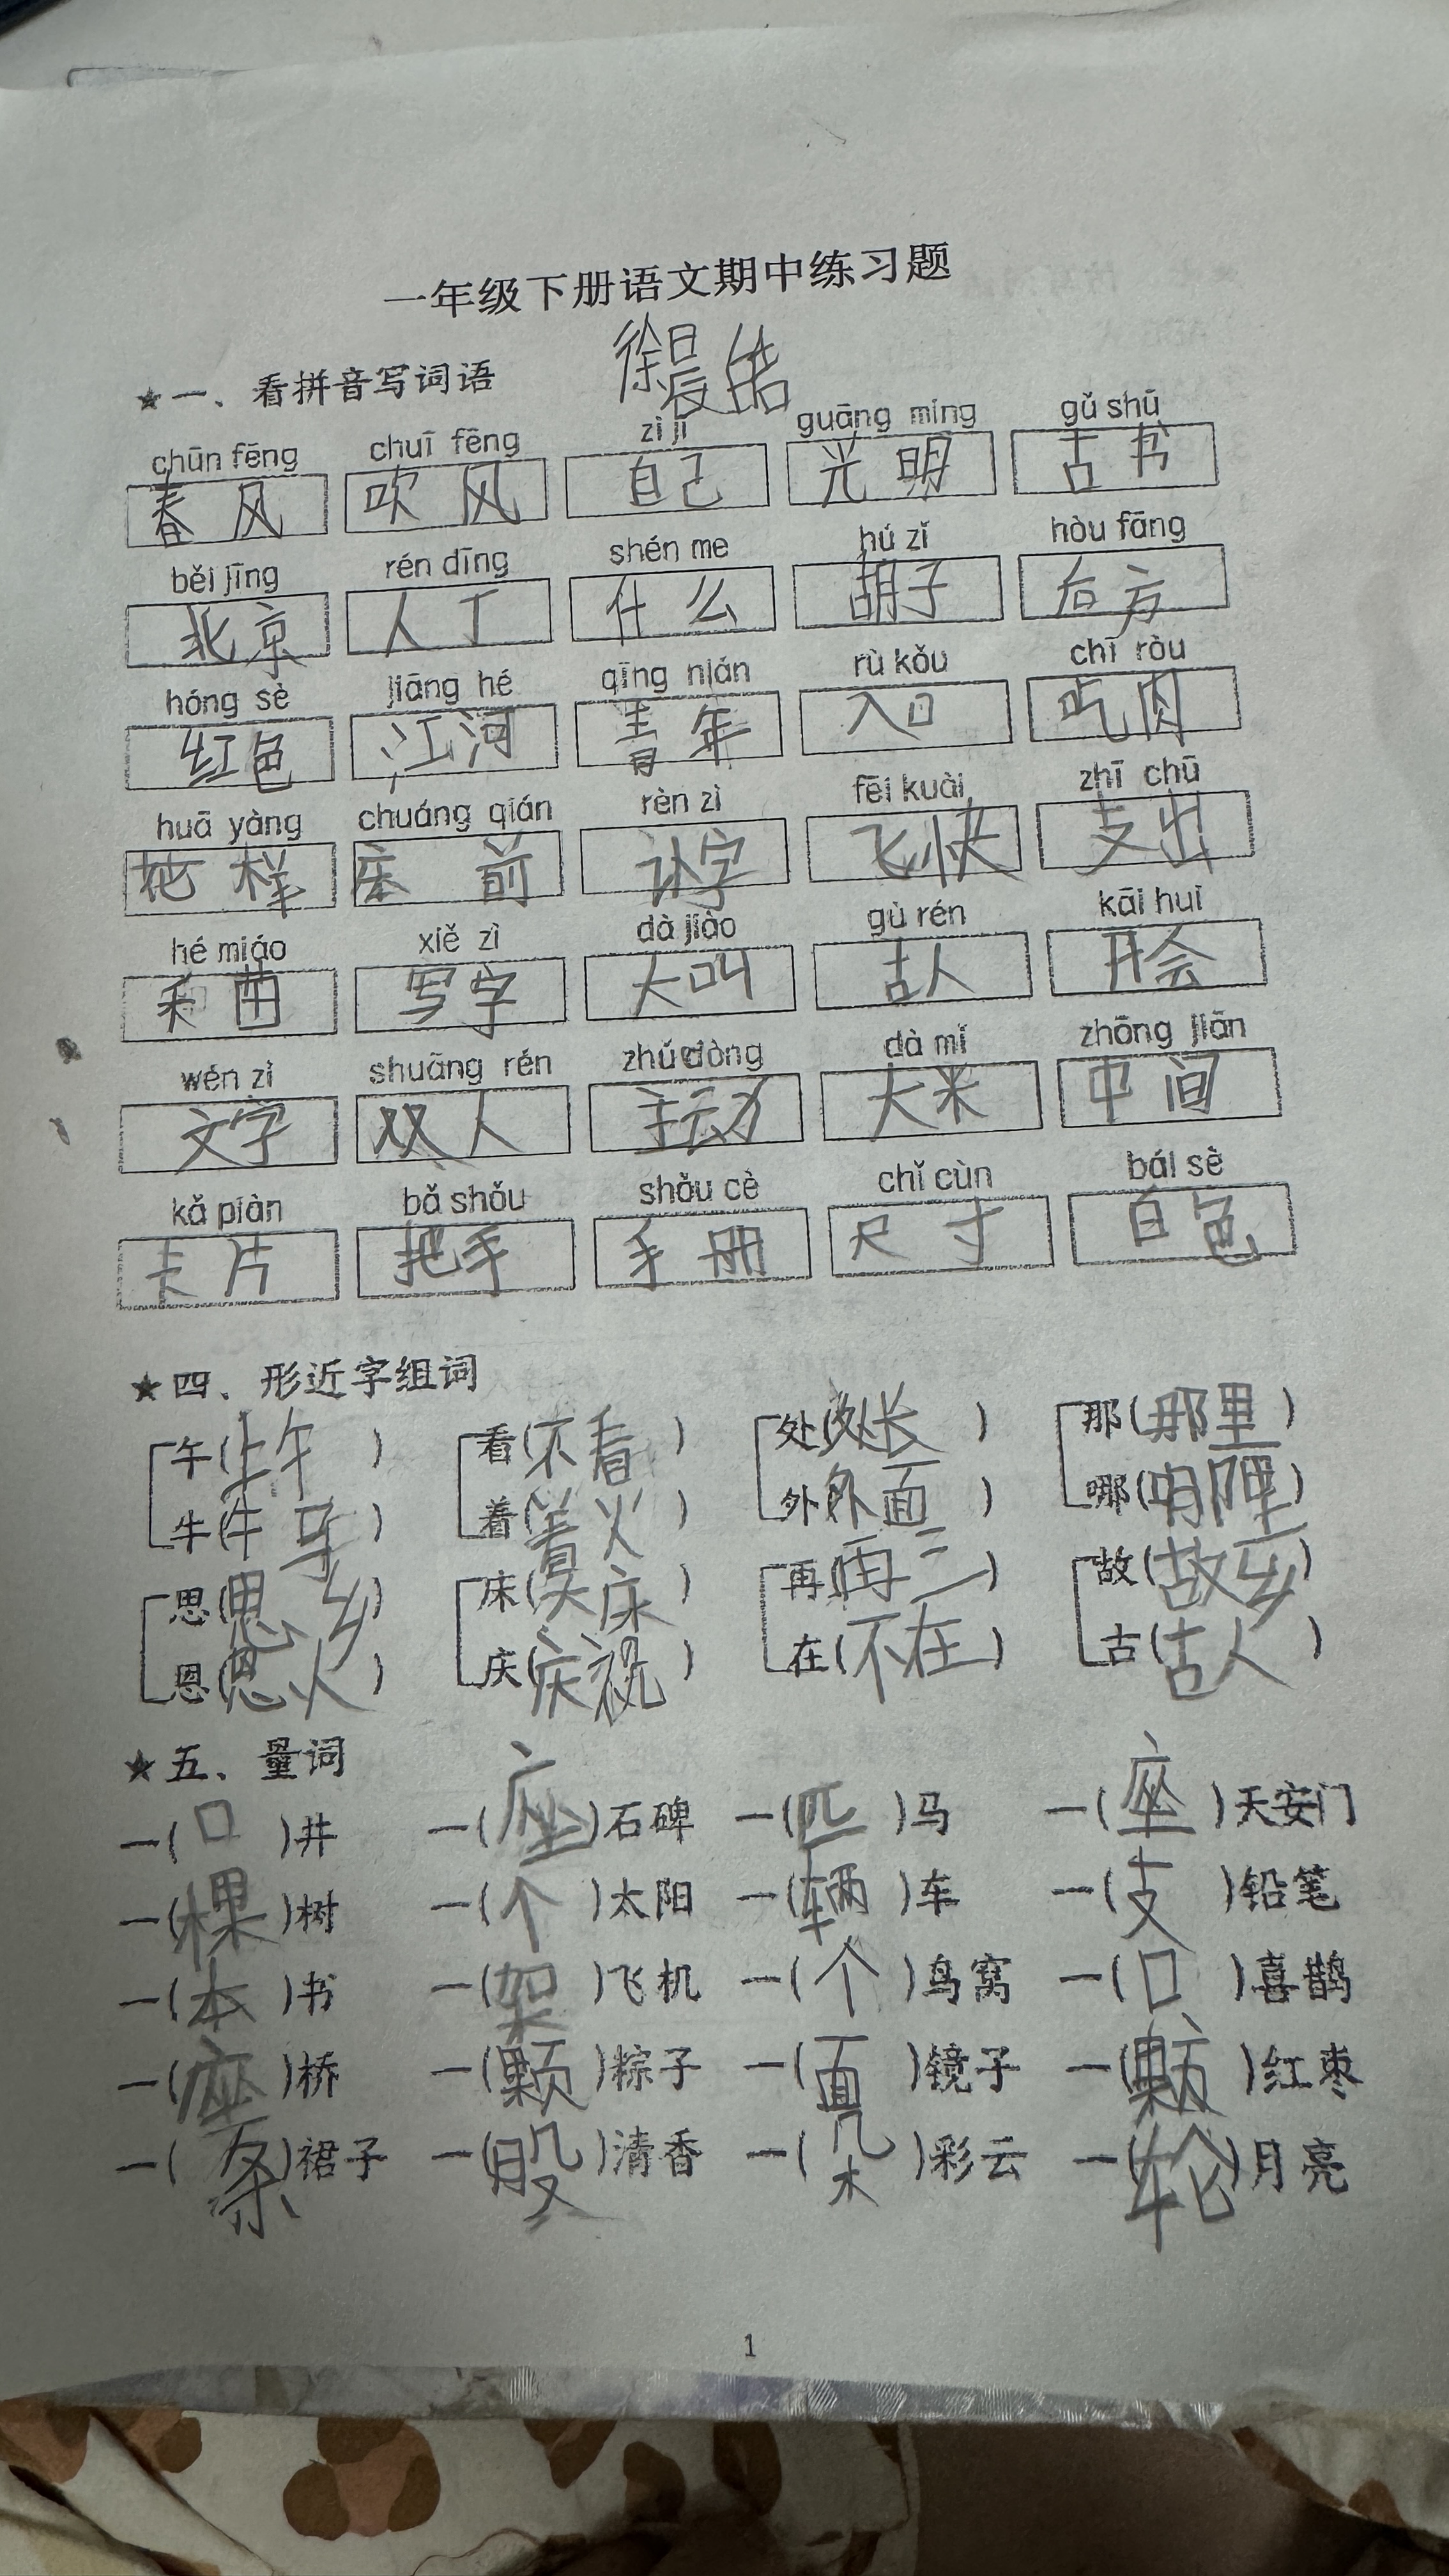 一年级下册语文期中练习题
徐晨皓
★一、看拼音写词语
chūn fēng chuī fēng zì jǐ guāng míng gǔ shū
春风 吹风 自己 光明 古书
běi jīng rén dīng shén me hú zǐ hòu fāng
北京 人丁 什么 胡子 后方
hóng sè jiāng hé qīng nián rù kǒu chī ròu
红色 江河 青年 入口 吃肉
huā yàng chuáng qián rèn zì fēi kuài zhī chū
花样 床前 认字 飞快 支出
hé miáo xiě zì dà jiào gù rén kāi huì
禾苗 写字 大叫 古人 开会
wén zì shuāng rén zhǔ dòng dà mǐ zhōng jiān
文字 双人 主动 大米 中间
kǎ piàn bǎ shǒu shǒu cè chǐ cùn bái sè
卡片 把手 手册 尺寸 白色
★四、形近字组词
午(上午) 看(不看) 处(处长) 那(那里)
牛(牛牙) 着(着火) 外(外面) 哪(哪里)
思(思乡) 床(床) 再(再三) 故(故乡)
恩(恩火) 庆(庆祝) 在(不在) 古(古人)
★五、量词
一(口)井 一(座)石碑 一(匹)马 一(座)天安门
一(棵)树 一(个)太阳 一(辆)车 一(支)铅笔
一(本)书 一(架)飞机 一(个)鸟窝 一(口)喜鹊
一(座)桥 一(颗)粽子 一(面)镜子 一(颗)红枣
一(条)裙子 一(股)清香 一(朵)彩云 一(轮)月亮
1